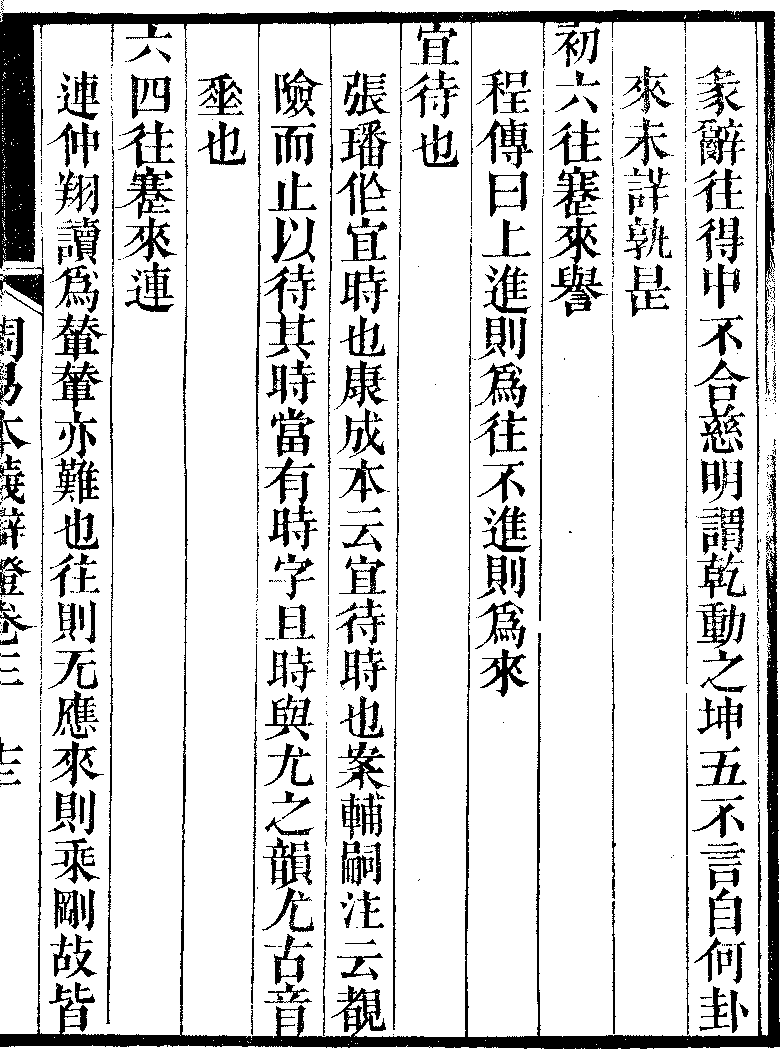 彖辭往得中不合慈明謂乾動之坤五不言自何卦
來未詳孰是
初六往蹇來譽
程傳曰上進則爲往不進則爲來
宜待也
張璠作宜時也康成本云宜待時也案輔嗣注云覩
險而止以待其時當有時字且時與尤之韻尤古音
埀也
六四往蹇來連
連仲翔讀爲輦輦亦難也往則无應來則乘剛故皆
周易本義辯證卷三